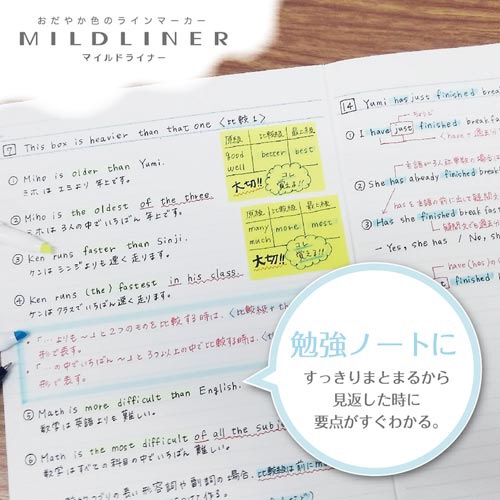 おだやか色のラインマーカー
MILDLINER
マイルドライナー
7 This box is heavier than that one 〈比較1〉
① Miho is older than Yumi.
ミホはユミより年上です。
② Miho is the oldest of the three.
ミホは3人の中でいちばん年上です。
③ Ken runs faster than Sinji.
ケンはシンジよりも速く走ります。
④ Ken runs (the) fastest in his class.
ケンはクラスでいちばん速く走ります。
・「…よりも〜」と2つのものを比較する時は、〈比較級+th
形で表す。
・「…の中でいちばん〜」と3つ以上の中で比較する時は、〈the
形で表す。
⑤ Math is more difficult than English.
数学は英語よりも難しい。
⑥ Math is the most difficult of all the subje
数学はすべての科目の中でいちばん難しい。
の長い形容詞や副詞の場合、比較級は前にmo
原級 比較級 最上級
good better best
well
大切!! コレ覚えろ!!
原級 比較級 最上級
many more most
much
大切!! コレ覚えろ!!
14 Yumi has just finished breakf
① I have just finished breakfa
② She has already finished break
③ Has she finished break
– Yes, she has / No, sh
have(has)の
finished br
勉強ノートに
すっきりまとまるから
見返した時に
要点がすぐわかる。